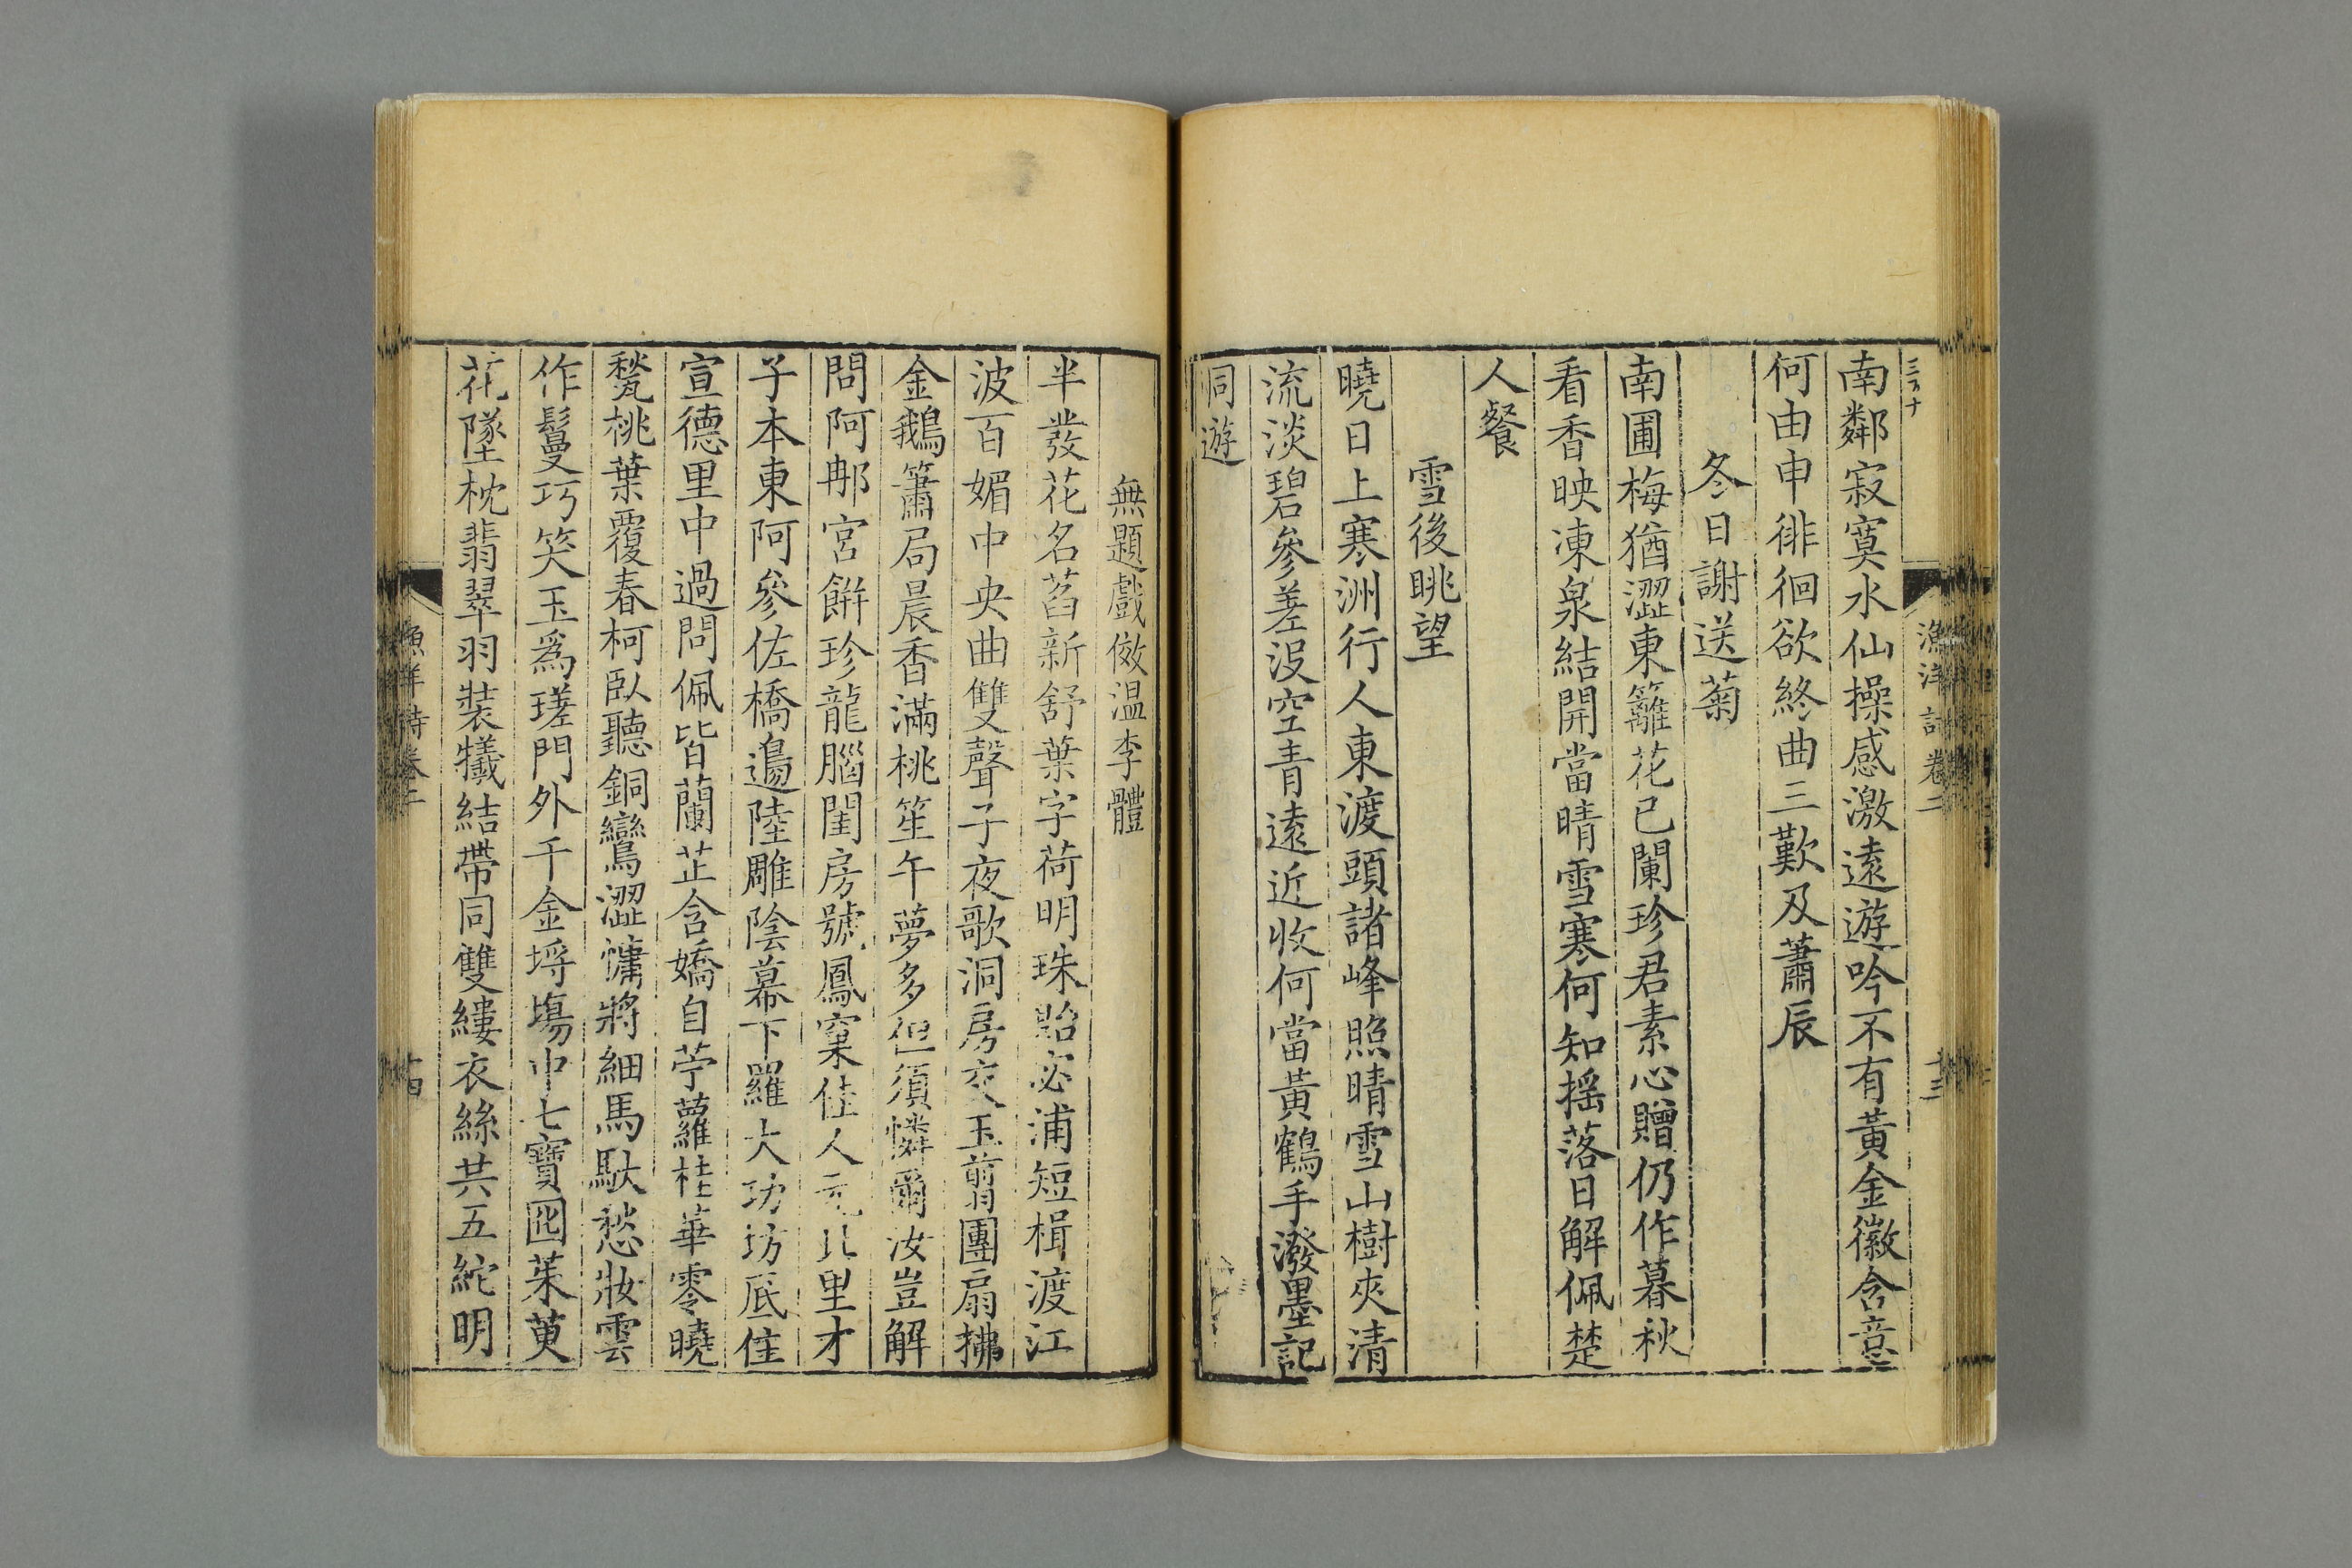 三百十
南鄰寂寞水仙操感激遠遊吟不有黃金徽含意
何由申徘徊欲終曲三歎及蕭辰
冬日謝送菊
南圃梅猶澀東籬花已闌珍君素心贈仍作暮秋
看香映凍泉結開當晴雪寒何知搖落日解佩楚
人餐
雪後眺望
曉日上寒洲行人東渡頭諸峰照晴雪山樹夾清
流淡碧參差沒空青遠近收何當黃鶴手潑墨記
同遊
漁洋詩卷二
十三
無題戲倣温李體
半發花名菭新舒葉字荷明珠貽宓浦短楫渡江
波百媚中央曲雙聲子夜歌洞房交玉翦團扇拂
金鵝簫局晨香滿桃笙午夢多但須憐爾汝豈解
問阿郍宮餅珍龍腦閨房號鳳窠佳人元北里才
子本東阿參佐橋邊陸雕陰幕下羅大功坊底住
宣德里中過問佩皆蘭芷含嬌自苧蘿桂華零曉
甃桃葉覆春柯臥聽銅鸞澀慵將細馬馱愁妝雲
作鬘巧笑玉為瑳門外千金埒塲中七寶囮茱萸
花墜枕翡翠羽裝犧結帶同雙縷衣絲共五紽明
漁洋詩卷二
十四